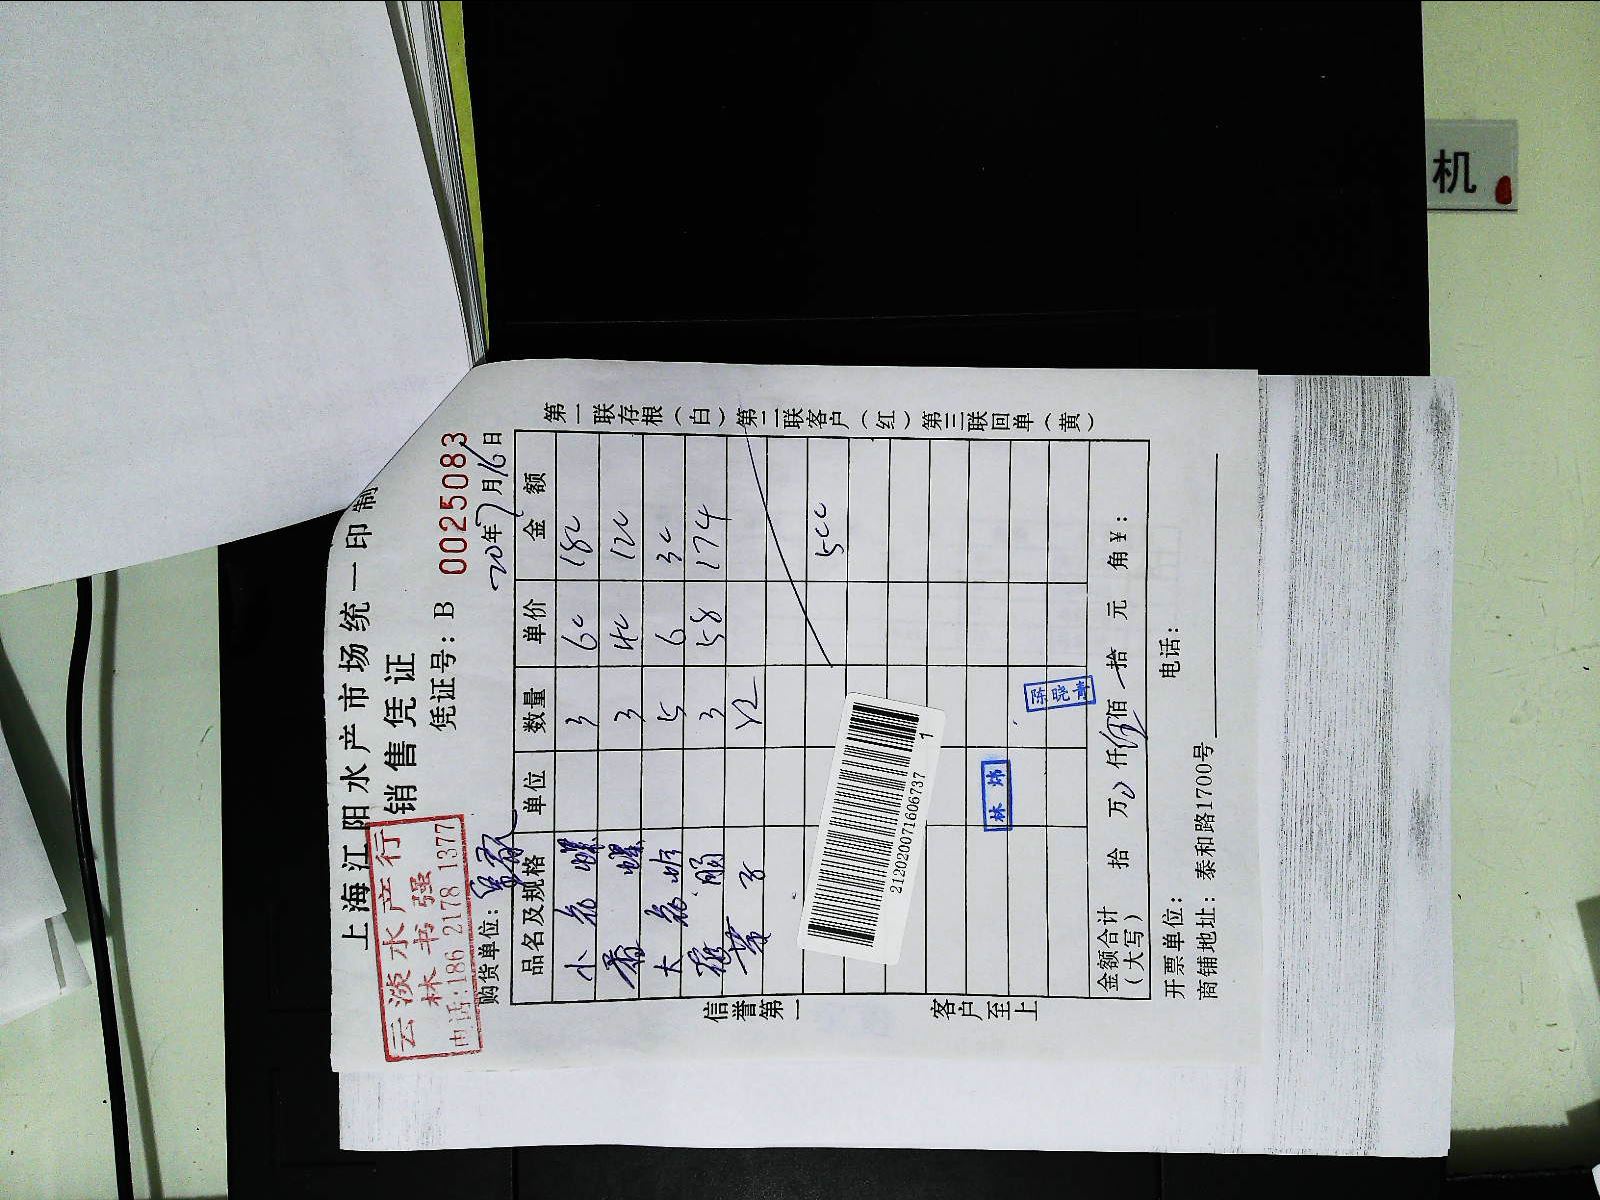 上海江阳水产市场统一印制
销售凭证
云淡水产行
林书强
电话:186 2178 1377
凭证号: B 0025083
购货单位:
20年7月16日
品名及规格 单位 数量 单价 金额
小 螺 3 60 180
香螺 3 40 120
大 5 6 30
3 58 174
子 12
500
金额合计(大写) 拾 万 仟 佰 拾 元 角 ¥:
开票单位: 电话:
商铺地址: 泰和路1700号
信誉第一 客户至上
第一联存根(白) 第二联客户(红) 第三联回单(黄)
林炜
陈晓青
212020071606737
1
机